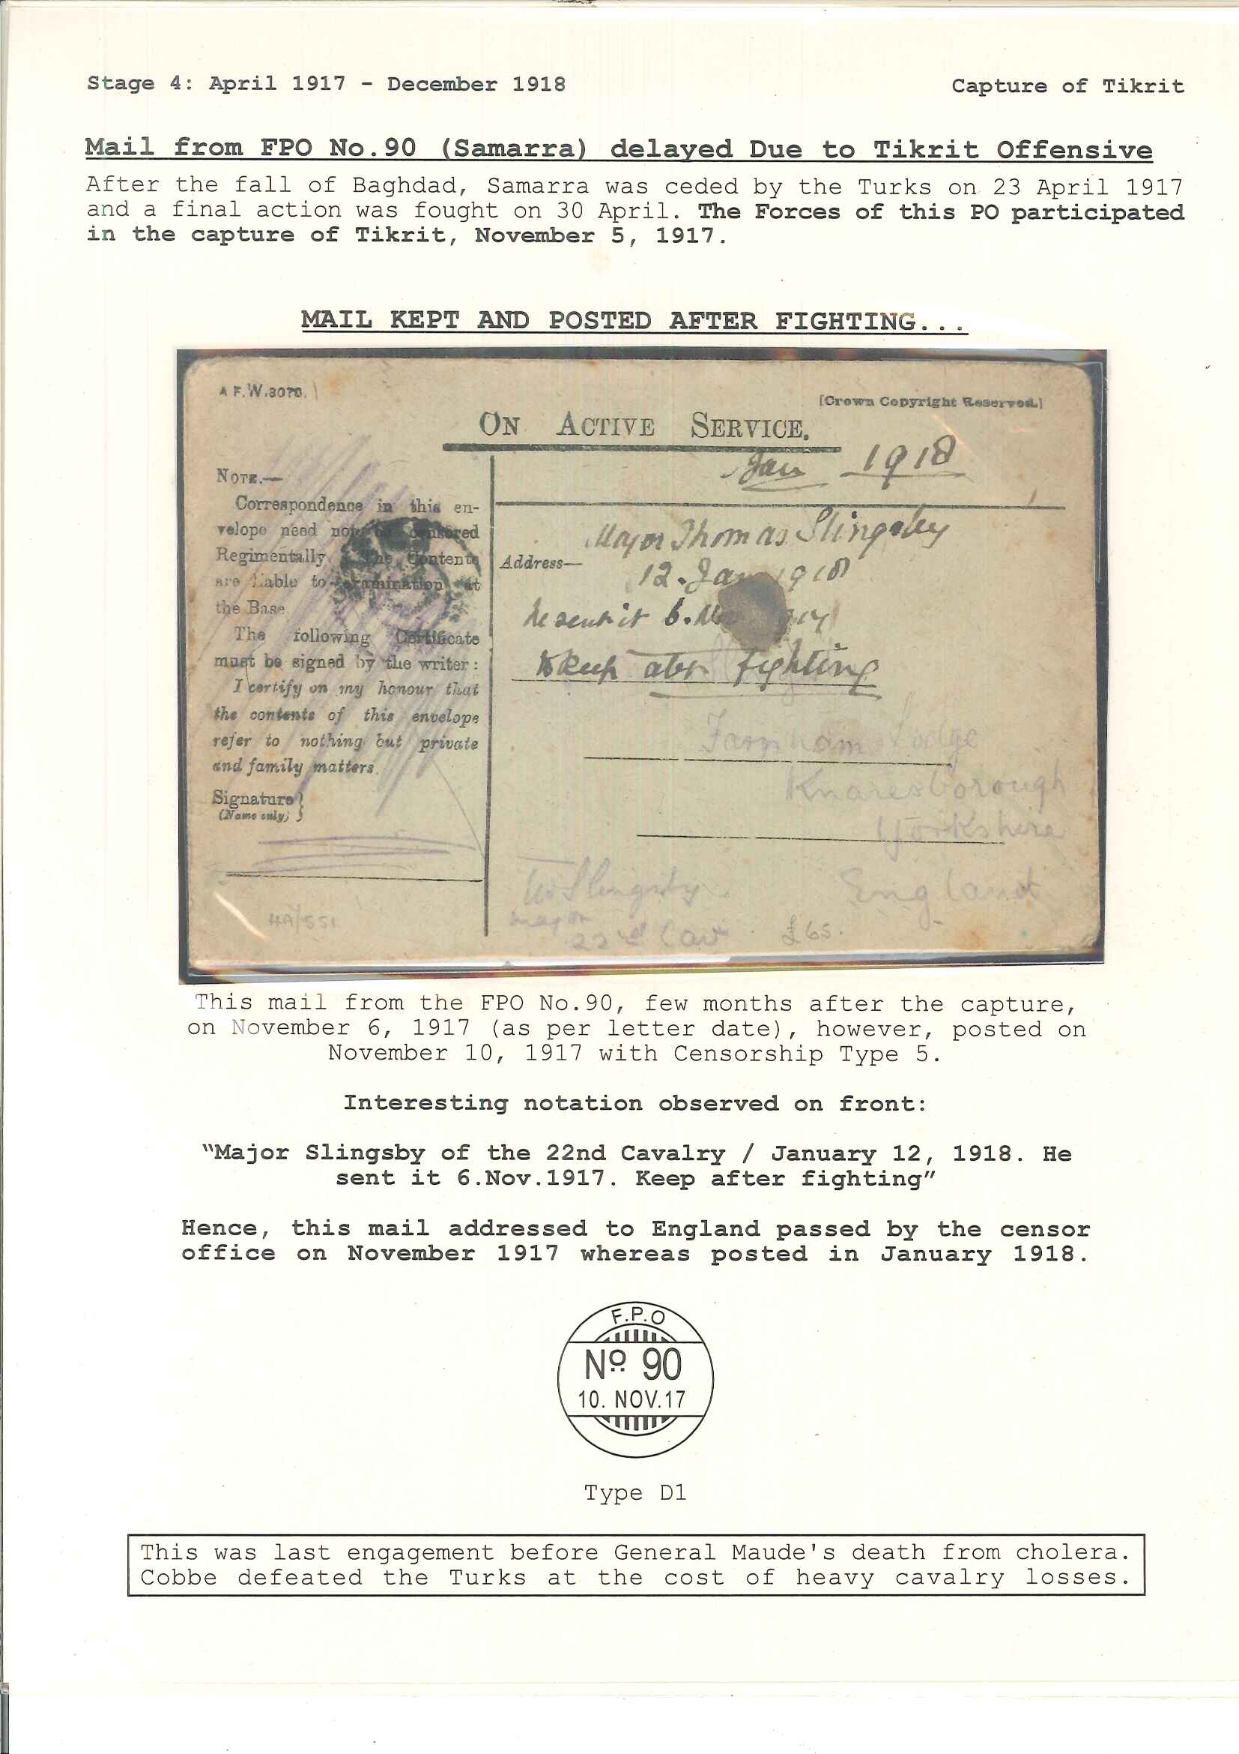 Stage 4: April 1917 - December 1918
Capture of Tikrit
Mail from FPO No.90 (Samarra) delayed Due to Tikrit Offensive
After the fall of Baghdad, Samarra was ceded by the Turks on 23 April 1917
and a final action was fought on 30 April. The Forces of this PO participated
in the capture of Tikrit, November 5, 1917.
MAIL KEPT AND POSTED AFTER FIGHTING...
A F.W.3078.
[Crown Copyright Reserved.]
ON ACTIVE SERVICE.
Jan 1918
NOTE.—
Correspondence in this en-
velope need not be censored
Regimentally. The Contents
are liable to examination at
the Base.
The following Certificate
must be signed by the writer:
I certify on my honour that
the contents of this envelope
refer to nothing but private
and family matters.
Signature }
(Name only)
Major Thomas Slingsby
Address—
12. Jan 1918
he sent it 6. Nov 1917
Keep after fighting
Farnham Lodge
Knaresborough
Yorkshire
England
T. Slingsby
Major
22nd Cav
£65.
This mail from the FPO No.90, few months after the capture,
on November 6, 1917 (as per letter date), however, posted on
November 10, 1917 with Censorship Type 5.
Interesting notation observed on front:
“Major Slingsby of the 22nd Cavalry / January 12, 1918. He
sent it 6.Nov.1917. Keep after fighting”
Hence, this mail addressed to England passed by the censor
office on November 1917 whereas posted in January 1918.
F.P.O
Nº 90
10. NOV.17
Type D1
This was last engagement before General Maude's death from cholera.
Cobbe defeated the Turks at the cost of heavy cavalry losses.